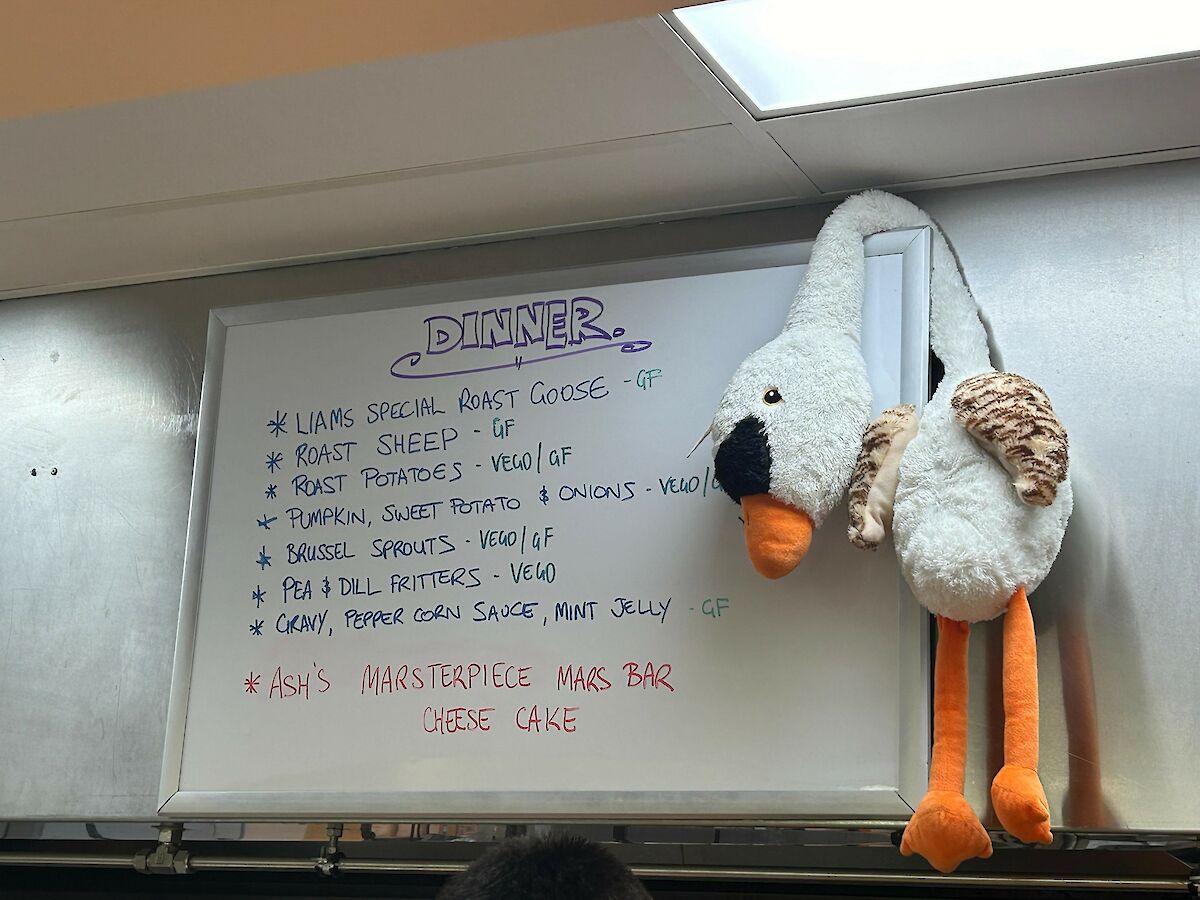 DINNER.
* LIAMS SPECIAL ROAST GOOSE - GF
* ROAST SHEEP - GF
* ROAST POTATOES - VEGO/GF
* PUMPKIN, SWEET POTATO & ONIONS - VEGO/
* BRUSSEL SPROUTS - VEGO/GF
* PEA & DILL FRITTERS - VEGO
* GRAVY, PEPPER CORN SAUCE, MINT JELLY - GF
* ASH'S MARSTERPIECE MARS BAR
CHEESE CAKE